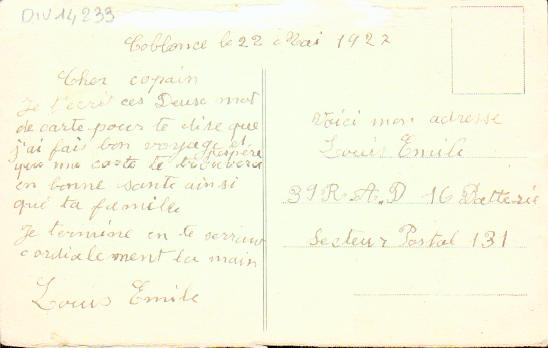 DIV 14,233
Coblence le 22 Mai 1927
Cher copain
Je t'ecrit ces Deuse mot
de carte pour te dise que
j'ai fais bon voyage et
que ma carte te trouvera
j'espère
en bonne sante ainsi
que ta famille
Je termine en te serrant
cordialement la main
Louis Emile
Voici mon adresse
Louis Emile
39 R.A.D 16 Batterie
Secteur Postal 131